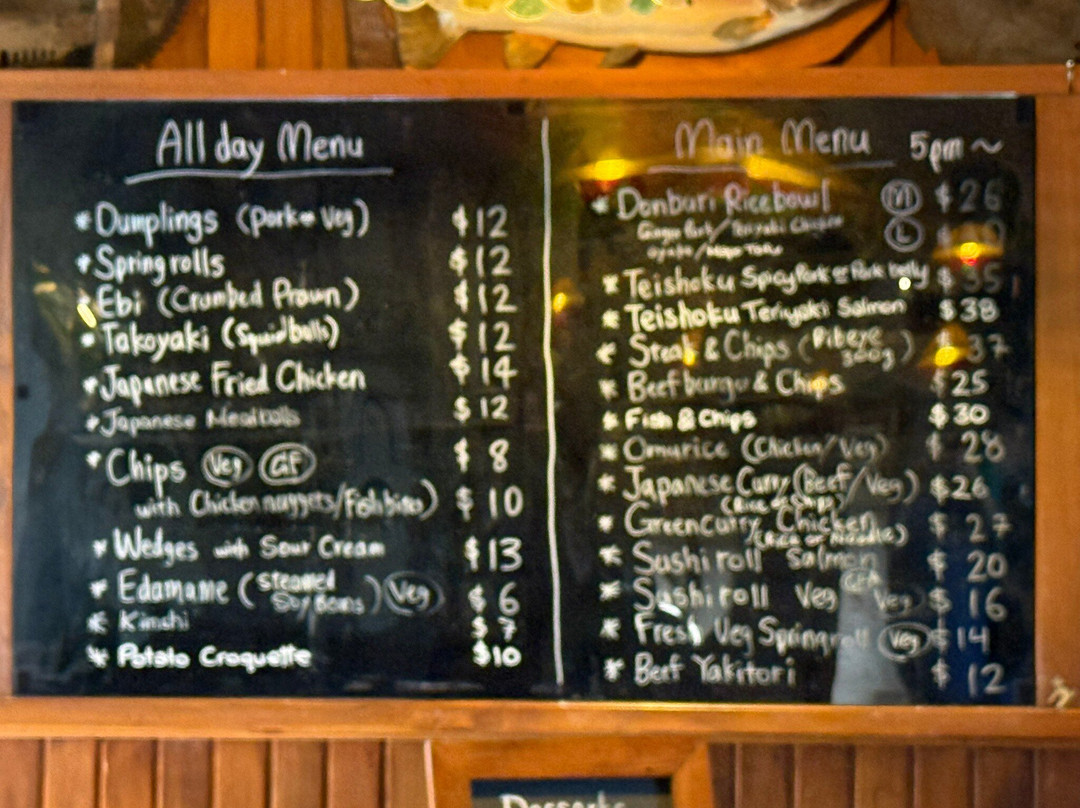 All day Menu
* Dumplings (Pork or Veg) $12
* Spring rolls $12
* Ebi (Crumbed Prawn) $12
* Takoyaki (Squid balls) $12
* Japanese Fried Chicken $14
* Japanese Meatballs $12
* Chips Veg GF $8
with Chicken nuggets/Fish bites) $10
* Wedges with Sour Cream $13
* Edamame (Steamed Soy Beans) Veg $6
* Kimchi $7
* Potato Croquette $10
Main Menu 5pm ~
* Donburi Rice bowl M $26
Ginger Pork/Teriyaki Chicken L
Oyako/
* Teishoku Spicy Pork or Pork belly $35
* Teishoku Teriyaki Salmon $38
* Steak & Chips (Ribeye 300g) $37
* Beef burger & Chips $25
* Fish & Chips $30
* Omurice (Chicken/Veg) $28
* Japanese Curry (Beef/Veg) $26
(Rice or Chips)
* Green curry Chicken $27
(Rice or Noodle)
* Sushi roll Salmon $20
* Sushi roll Veg Veg $16
* Fresh Veg Spring roll Veg $14
* Beef Yakitori $12
Desserts